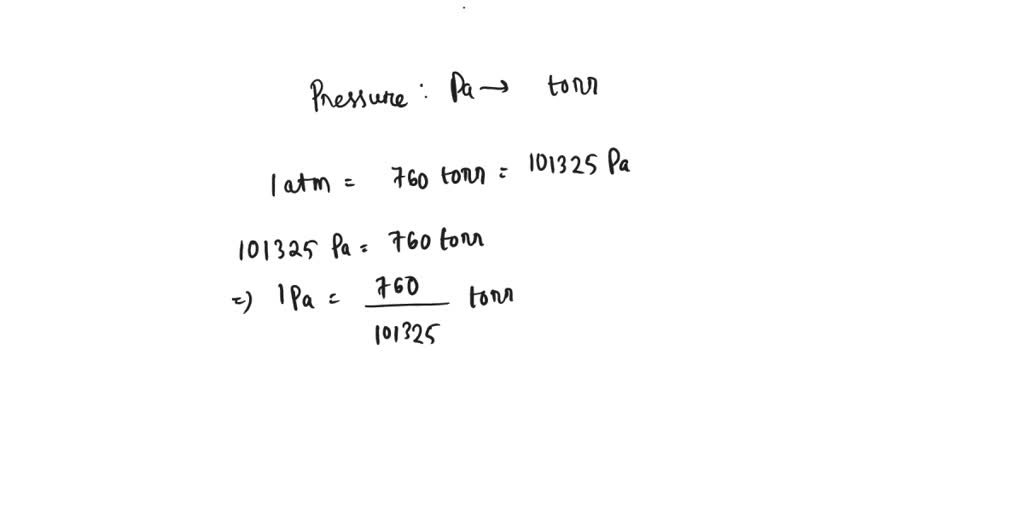 Pressure : Pa → torr
1 atm = 760 torr = 101325 Pa
101325 Pa = 760 torr
=) 1 Pa = 760 / 101325 torr